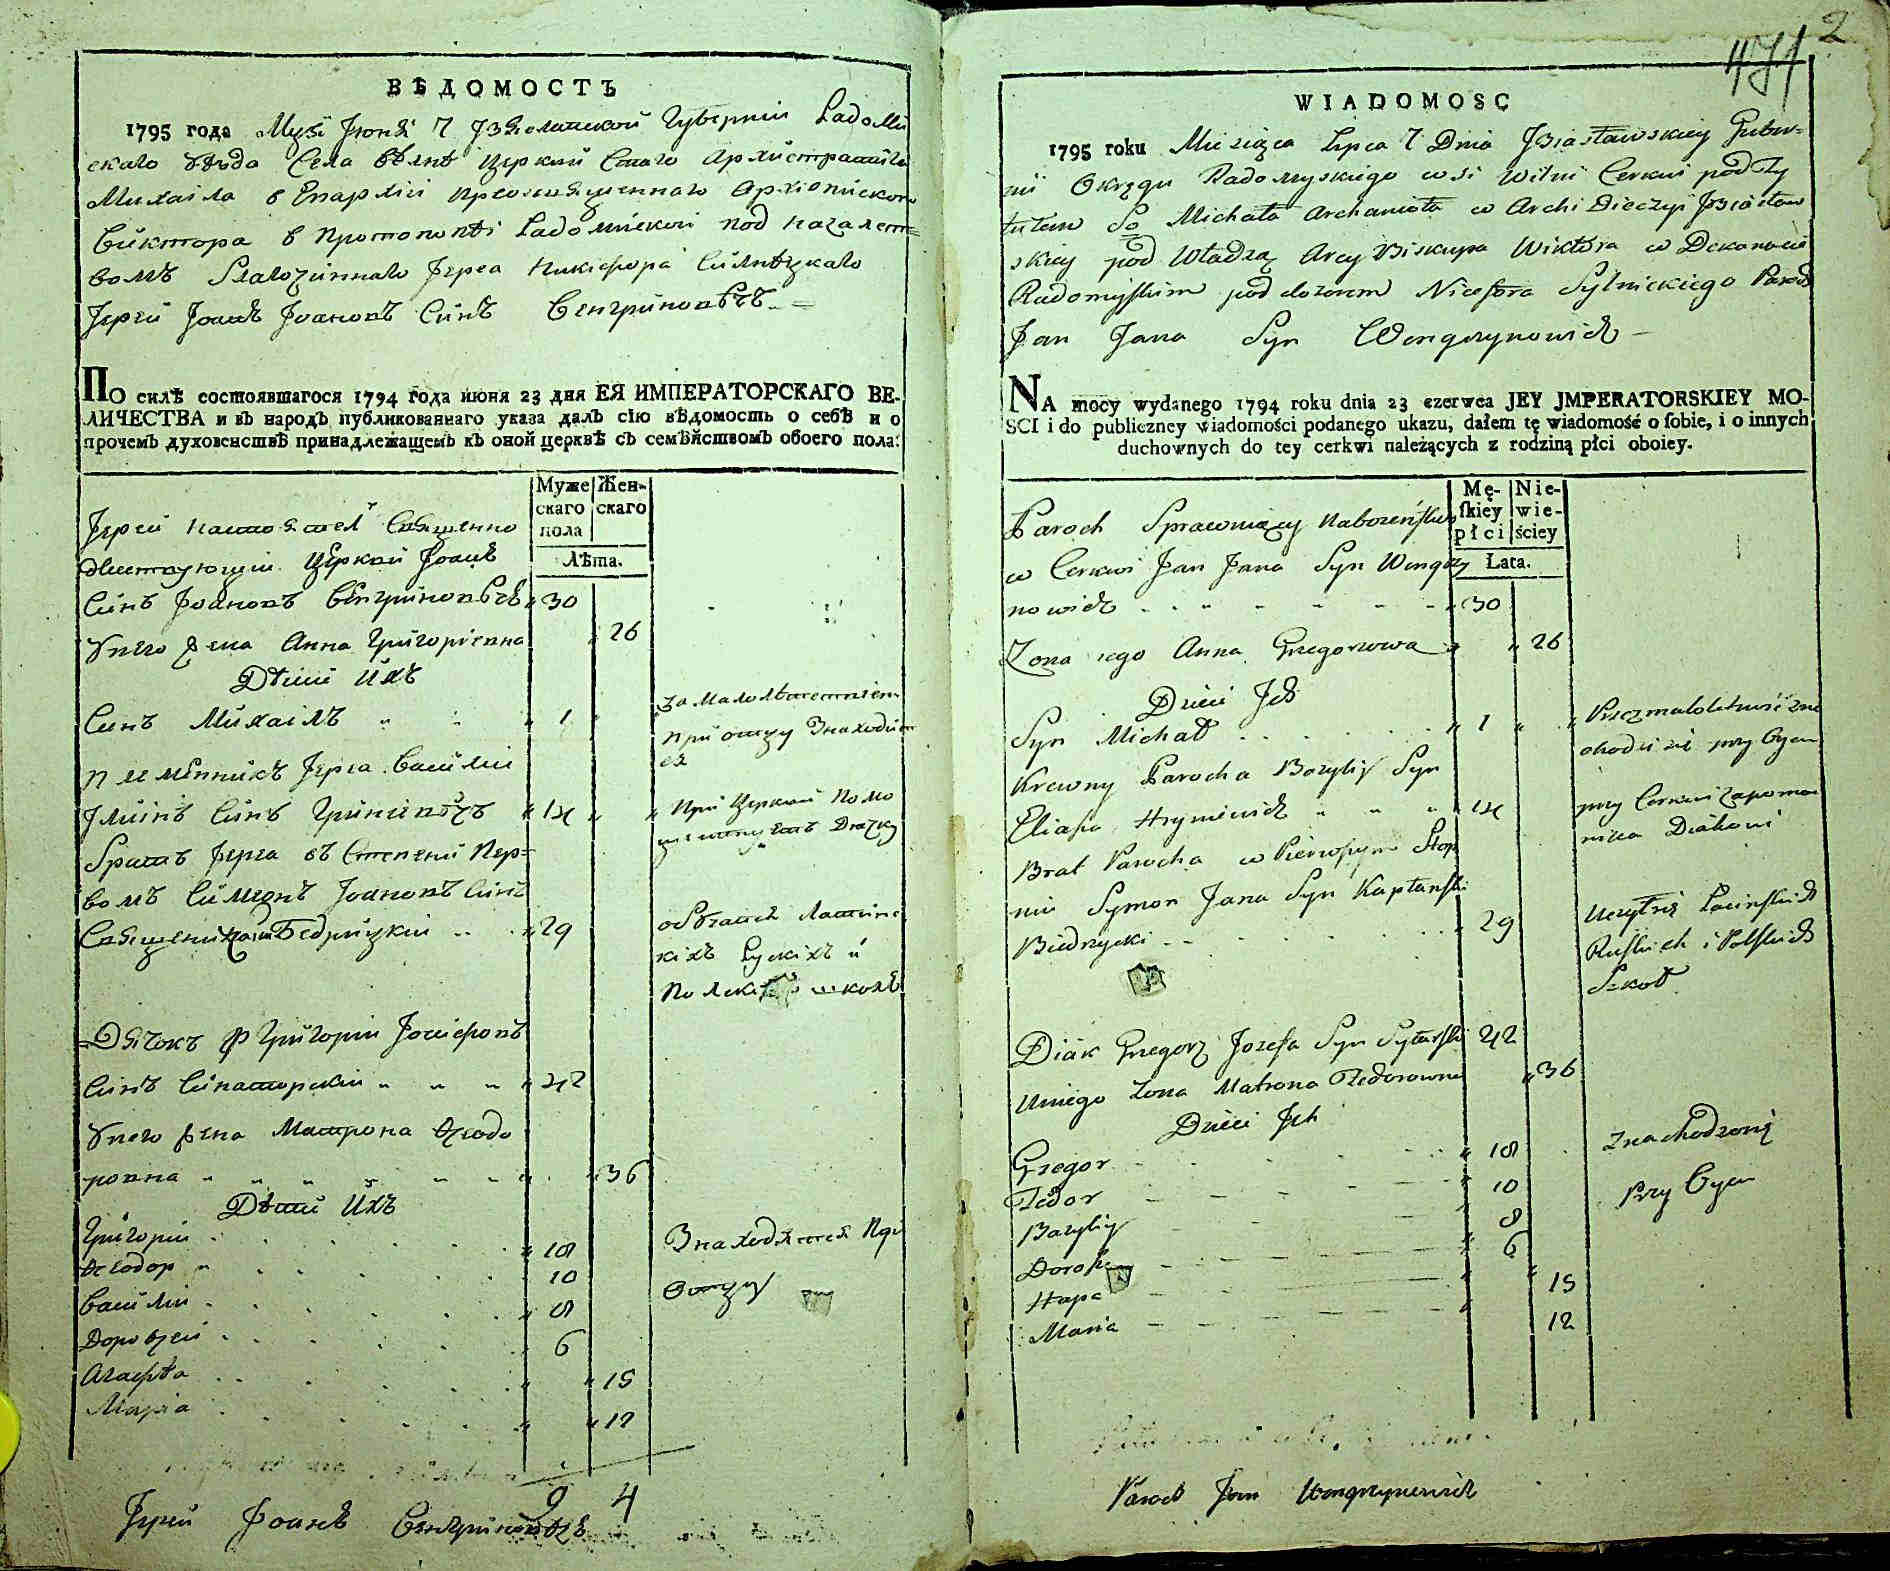 ВѢДОМОСТЬ
1795 года Мцѣ Іюня 7 Ізяславской Губерніи Радоми
скаго уѣзда Села Вѣлнѣ Церкви Стаго Архистратига
Михаила в Епархіи преосвященнаго Архіепископа
Виктора в протопопѣи Радомиской под началст=
вомъ Благочиннаго Іерея Никифора Силнѣцкаго
Іерей Іоанъ Іоановъ Синъ Венгриновѣчъ
ПО силѣ состоявшагося 1794 года июня 23 дня ЕЯ ИМПЕРАТОРСКАГО ВЕ-
ЛИЧЕСТВА и въ народъ публикованнаго указа далъ сію вѣдомость о себѣ и о
прочемъ духовенствѣ принадлежащемъ къ оной церквѣ съ семѣйствомъ обоего пола:
Муже Жен-
скаго скаго
пола
Лѣта.
Іерей настоятел Священно
дѣйствующий Церкви Іоанъ
Синъ Іоановъ Венгриновѣчъ 30
У него жена Анна Григориевна 26
Дѣти Ихъ
Синъ Михаілъ 1 за малолѣтствіем
при отцу Знаходит
ся
племѣнникъ Іерея Василий
Ілиинъ Синъ Гриневѣчъ 14 При Церкви помо
ществуетъ Дячку
Братъ Іерея въ Степени Пер=
вомъ Симеонъ Іоановъ Синъ
Священика Бедрицкий 29 обучался Латинс
кихъ Рускихъ и
Полски школъ
Дячокъ Григорий Іосифовъ
Синъ Синаторский 42
У него жена Матрона Феодо
ровна 36
Дѣти Ихъ
Григорий 18 Знаходятся При
Феодор 10 Отцу
Василий 8
Дорофей 6
Агафѣа 15
Марія 12
9 4
Іерей Іоанъ Венгриновѣчъ
2
471
WIADOMOSC
1795 roku Miesiąca Lipca 7 Dnia Jzasławskiey Guber=
nii Okręgu Radomyskiego wsi Wilni Cerkwi pod Ty
tułem So Michała Archanioła w Archi Dieczyi Jzasław
skiey pod Władzą Arcy Biskupa Wiktora w Dekanacie
Radomyskim pod dozorem Nicefora Sylnickiego Paroch
Jan Jana Syn Wengrynowicz
NA mocy wydanego 1794 roku dnia 23 czerwca JEY JMPERATORSKIEY MO-
SCI i do publiczney wiadomości podanego ukazu, dałem tę wiadomość o sobie, i o innych
duchownych do tey cerkwi należących z rodziną płci oboiey.
Mę- Nie-
skiey wie-
płci ściey
Lata.
Paroch Sprawuiący Nabożeństwo
w Cerkwi Jan Jana Syn Wengry
nowicz 30
Zona iego Anna Gregorowa 26
Dzieci Ich
Syn Michał 1 Przez małoletność zna
chodzi się przy Oycu
Krewny Parocha Bazyliy Syn
Eliasza Hryniewicz 14 przy Cerkwi zapoma
Brat Parocha w Pierwszym Stop
niu Symon Jana Syn Kapłański
Biedrzycki 29 Uczył się Łacinskich
Ruskich i Polskich
Szkoł
Diak Gregorz Jozefa Syn 42
Uniego Zona Matrona Fedorowna 36
Dzieci Ich
Gregor 18 Znachodzonsię
Fedor 10 Przy Oycu
Bazyliy 8
6
Hapa 15
Maria 12
Paroch Jan Wengrynowicz